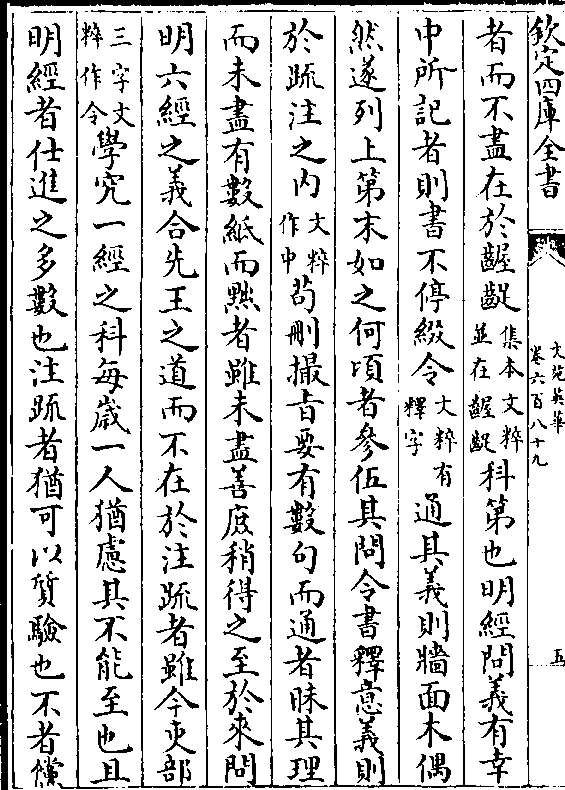 欽定四庫全書
文苑英華
卷六百八十九
五
者而不盡在於齷齪集本文粹並在齷齪科第也明經問義有幸
中所記者則書不停綴令文粹有釋字通其義則牆面木偶
然遂列上第末如之何頃者參伍其問令書釋意義則
於䟽注之内文粹作中苟刪撮㫖要有數句而通者昧其理
而未盡有數紙而黜者雖未盡善庶稍得之至於來問
明六經之義合先王之道而不在於注䟽者雖今吏部
三字文粹作令學究一經之科每歳一人猶慮其不能至也且
明經者仕進之多數也注䟽者猶可以質驗也不者儻